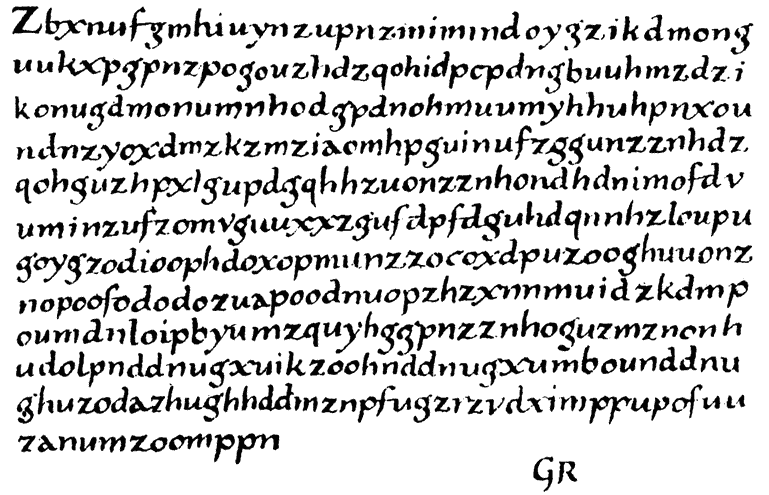 Zbxnufgmhiuynzupnzmimındoygzikdmong
uukxpgpnzpogouzhdzqohidpcpdngbuuhmzdzi
konugdmonumnhodgpdnohmuumyhhuhpnxou
ndnzyoxdmzkzmziaomhpguinufzggunzznhdz
qohguzhpxlgupdgqhhzuonzznhondhdnimofdv
uminzufzomvguuxxzgufdpfdguhdqnnhzlcupu
goygzodioophdoxopmunzzocoxdpuzooghuuonz
nopoofododozuapoodnuopzhzxnnmuidzkdmp
oumdnloipbyumzquyhggpnzznhoguzmznonh
udolpnddnugxuikzoohnddnugxumbounddnu
ghuzodazhughhddmznpfugzrzvdximppupofuu
zanumzoomppn
GR